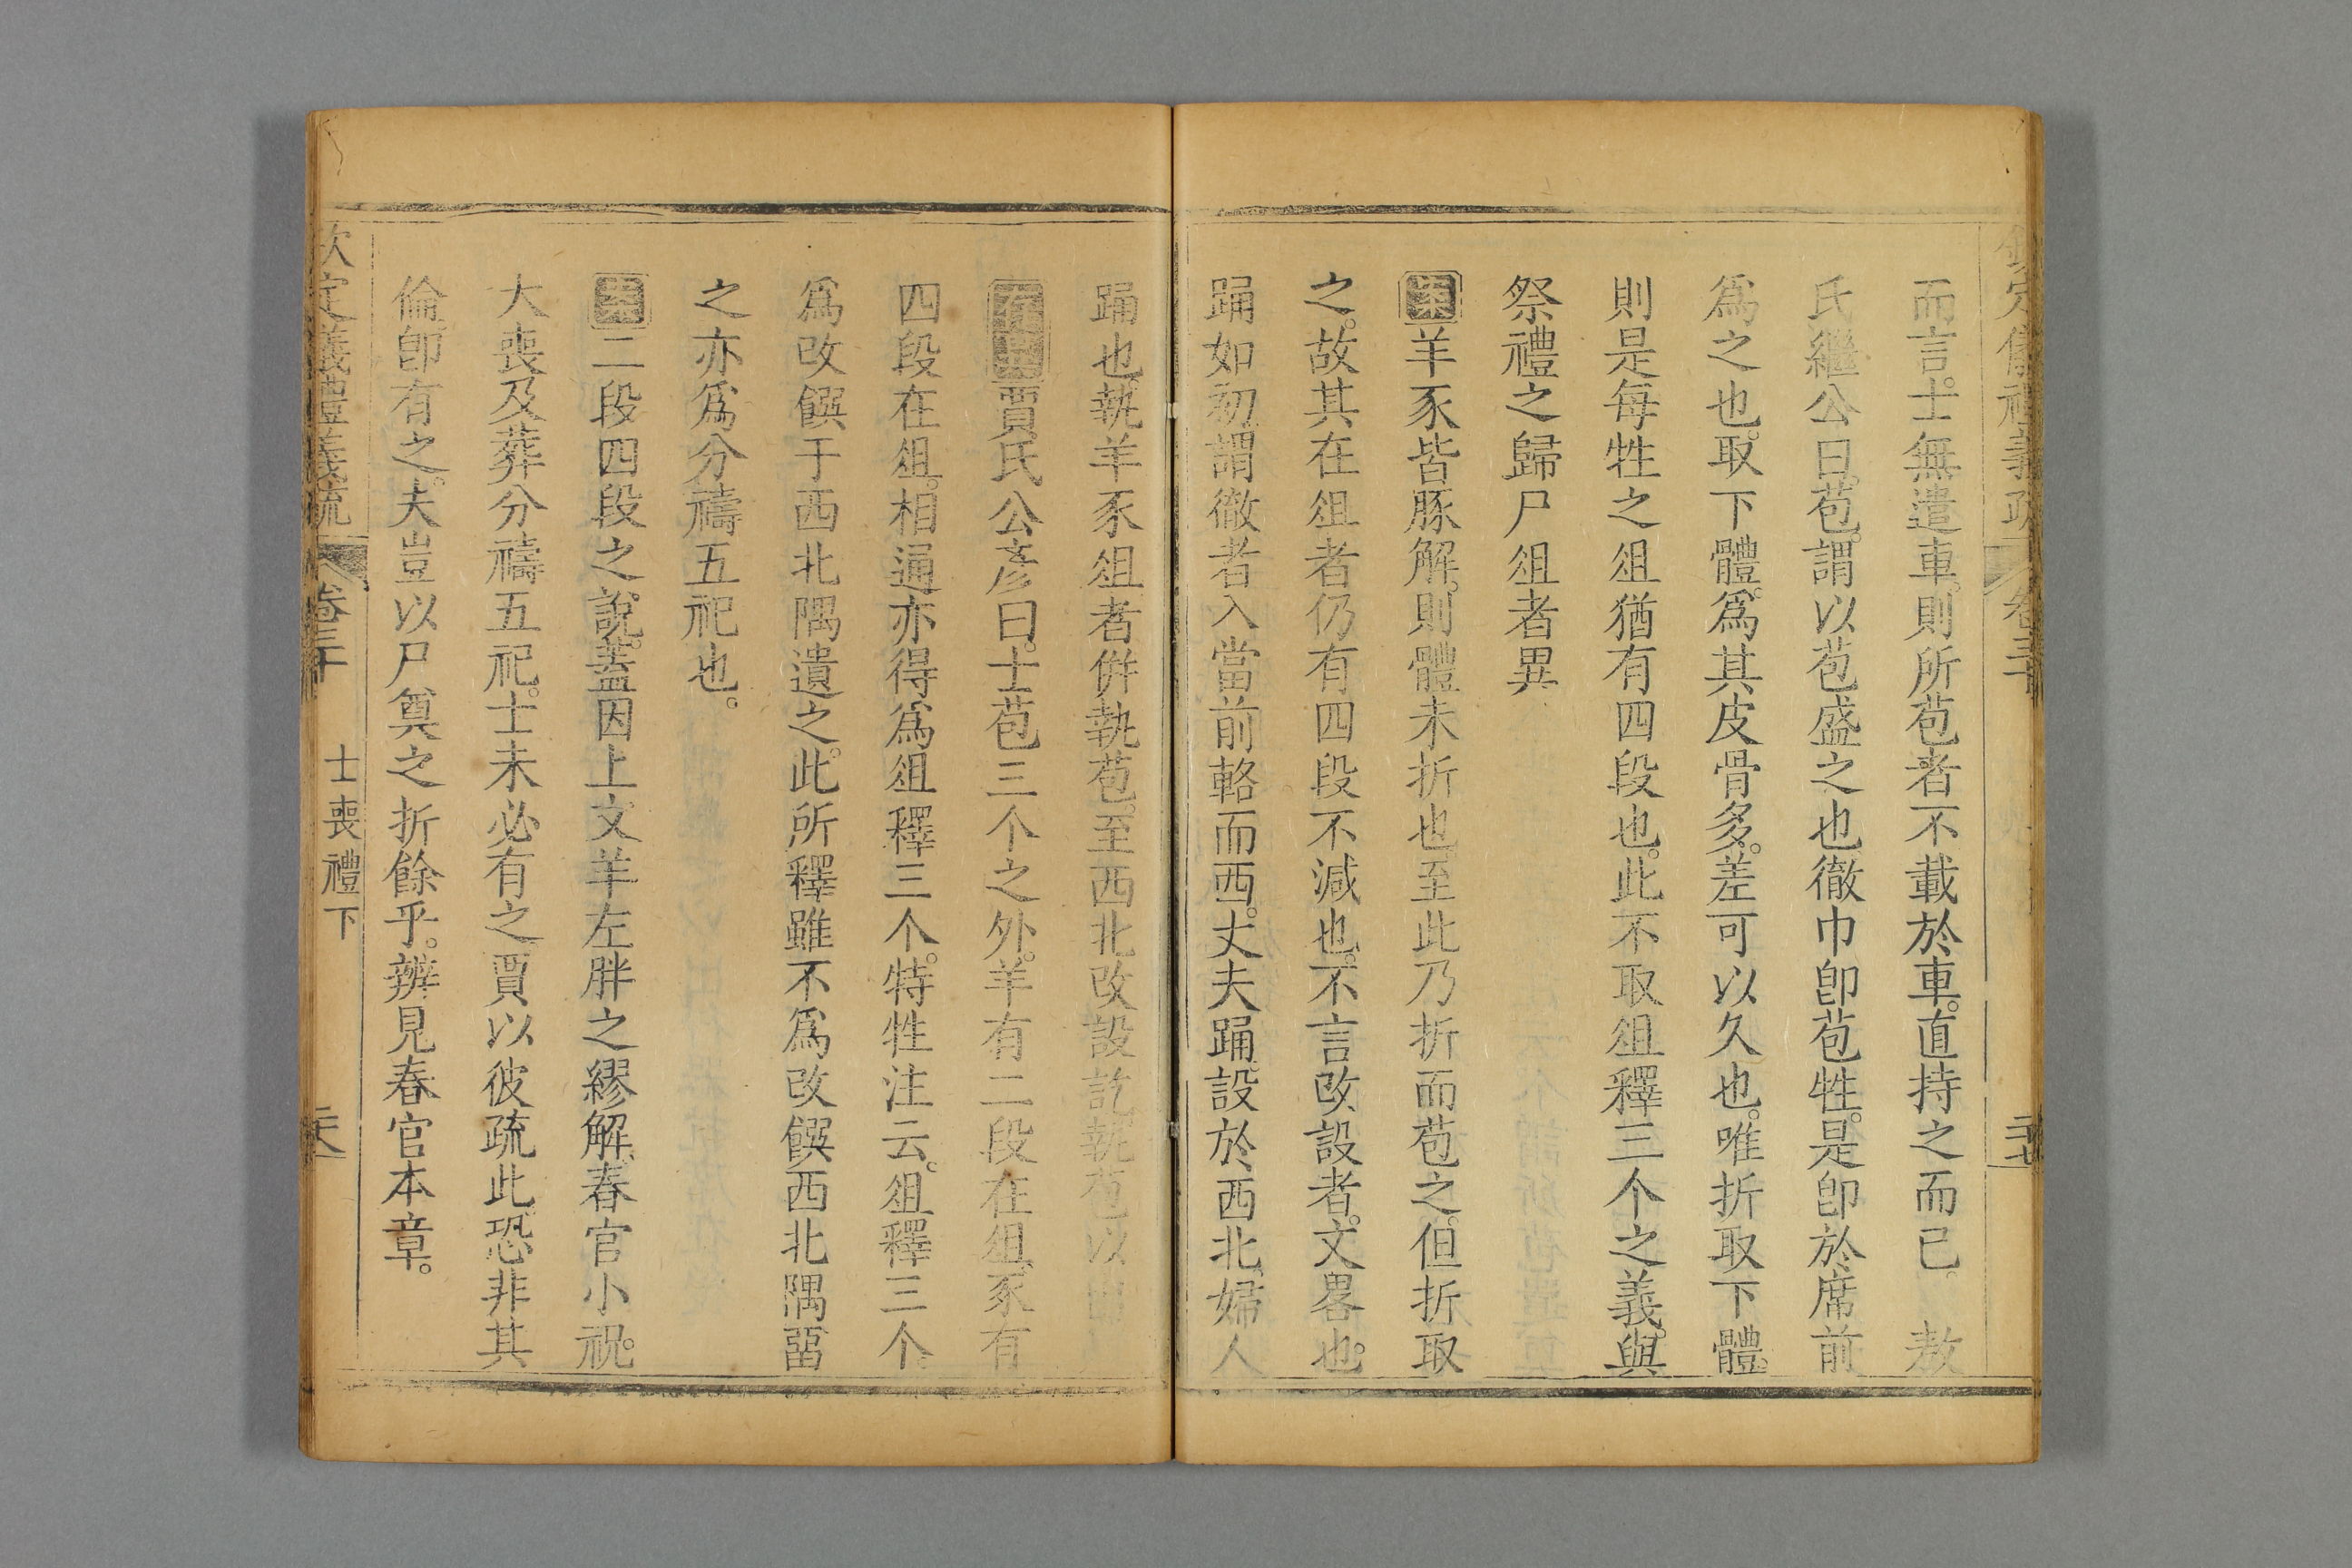 欽定儀禮義疏 卷三十 二十七
而言。士無遣車。則所苞者不載於車。直持之而已。 敖
氏繼公曰。苞。謂以苞盛之也。徹巾卽苞牲。是卽於席前
爲之也。取下體。爲其皮骨多。差可以久也。唯折取下體。
則是每牲之俎猶有四段也。此不取俎釋三个之義。與
祭禮之歸尸俎者異
案羊豕皆豚解。則體未折也。至此乃折而苞之。但折取
之。故其在俎者仍有四段不減也。不言改設者。文畧也。
踊如初。謂徹者入當前輅而西。丈夫踊。設於西北。婦人
踊也。執羊豕俎者併執苞。至西北改設訖。執苞以出
賈氏公彥曰。士苞三个之外。羊有二段在俎。豕有
四段在俎。相通亦得爲俎釋三个。特牲注云。俎釋三个。
爲改饌于西北隅遺之。此所釋雖不爲改饌西北隅留
之亦爲分禱五祀也。
案二段四段之說。蓋因上文羊左胖之繆解。春官小祝。
大喪及葬分禱五祀。士未必有之。賈以彼疏此。恐非其
倫。卽有之。夫豈以尸奠之折餘乎。辨見春官本章。
欽定儀禮義疏 卷三十 士喪禮下 二十八